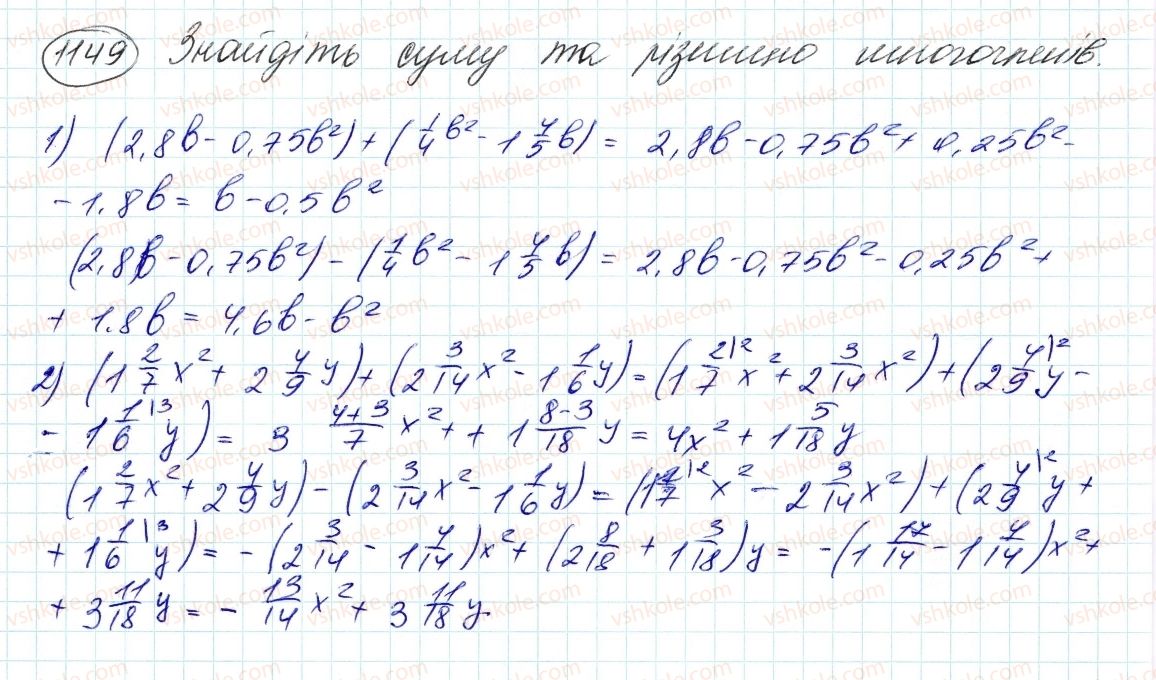 1149 Знайдіть суму та різницю многочленів.
1) (2,8b - 0,75b²) + (1/4 b² - 1 4/5 b) = 2,8b - 0,75b² + 0,25b² -
- 1,8b = b - 0,5b²
(2,8b - 0,75b²) - (1/4 b² - 1 4/5 b) = 2,8b - 0,75b² - 0,25b² +
+ 1,8b = 4,6b - b²
2) (1 2/7 x² + 2 4/9 y) + (2 3/14 x² - 1 1/6 y) = (1 2/7|² x² + 2 3/14 x²) + (2 4/9|² y -
- 1 1/6|³ y) = 3 4+3/7 x² + + 1 8-3/18 y = 4x² + 1 5/18 y
(1 2/7 x² + 2 4/9 y) - (2 3/14 x² - 1 1/6 y) = (1 2/7|² x² - 2 3/14 x²) + (2 4/9|² y +
+ 1 1/6|³ y) = - (2 3/14 - 1 4/14) x² + (2 8/18 + 1 3/18) y = - (1 17/14 - 1 4/14) x² +
+ 3 11/18 y = - 13/14 x² + 3 11/18 y.